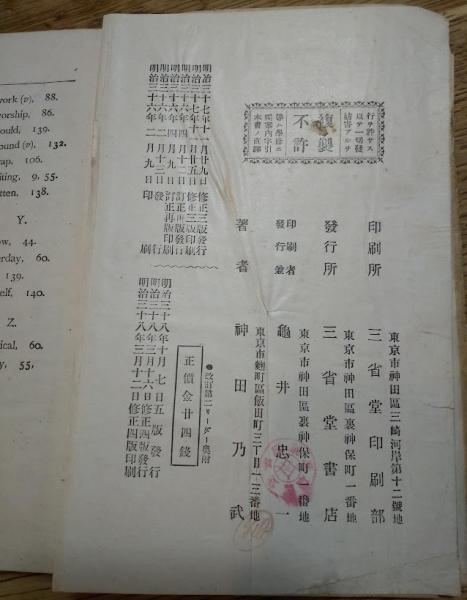 work (v), 88.
worship, 86.
ould, 139.
ound (v), 132.
rap. 106.
iting, 9, 55.
tten. 138.
Y.
ow, 44.
erday, 60.
139.
self, 140.
Z.
ical, 60.
y, 55,
複製
不許
明治三十六年二月九日印刷
明治三十六年二月十三日發行
明治三十六年四月九日訂正再版印刷
明治三十六年四月十二日訂正再版發行
明治三十七年十一月廿五日修正三版印刷
明治三十七年十一月廿九日修正三版發行
明治三十八年三月十二日修正四版印刷
明治三十八年三月十六日修正四版發行
明治三十八年十月七日五版發行
●改訂第二リーダー奧附
正價金廿四錢
著者
東京市麴町區飯田町三丁目一三番地
神田乃武
發行兼
印刷者
東京市神田區裏神保町一番地
龜井忠一
發行所
東京市神田區裏神保町一番地
三省堂書店
印刷所
東京市神田區三崎河岸第十二號地
三省堂印刷部